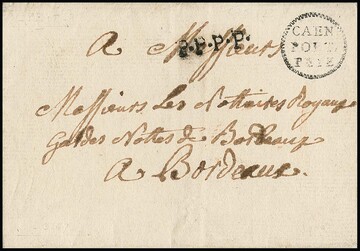 A Messieurs
P.P.P.P.
CAEN
PORT
PAYE
Messieurs Les Nottaires Royaux
Gardes Nottes de Bordeaux
A Bordeaux.